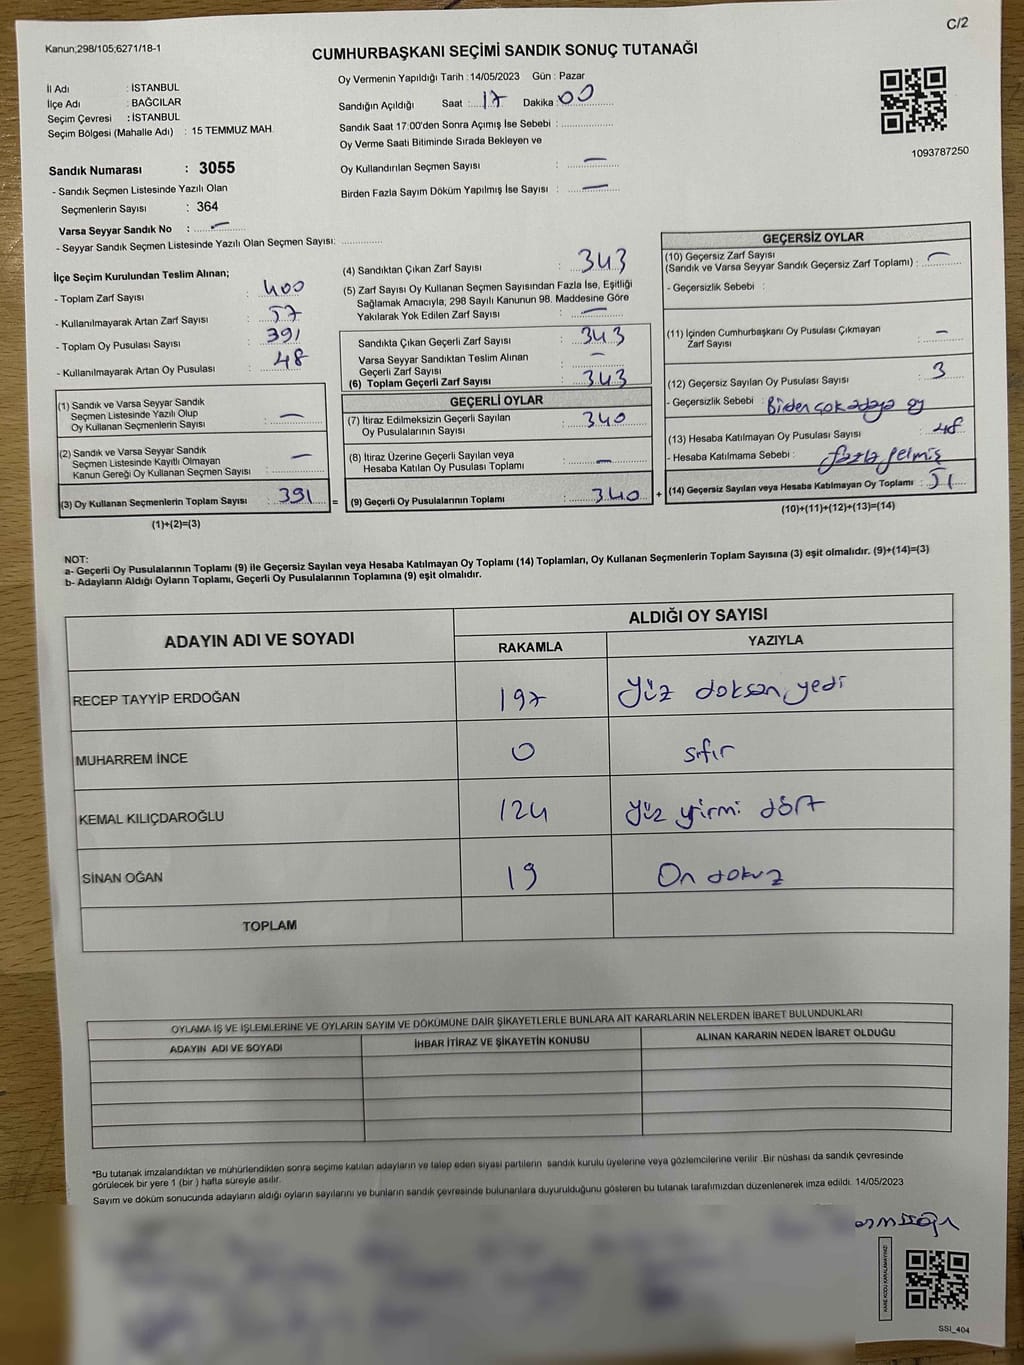 C/2
Kanun;298/105;6271/18-1
CUMHURBAŞKANI SEÇİMİ SANDIK SONUÇ TUTANAĞI
İl Adı : İSTANBUL
İlçe Adı : BAĞCILAR
Seçim Çevresi : İSTANBUL
Seçim Bölgesi (Mahalle Adı) : 15 TEMMUZ MAH.
Oy Vermenin Yapıldığı Tarih : 14/05/2023 Gün : Pazar
Sandığın Açıldığı Saat : 17 Dakika : 00
Sandık Saat 17:00'den Sonra Açımış İse Sebebi :
Oy Verme Saati Bitiminde Sırada Bekleyen ve
Oy Kullandırılan Seçmen Sayısı : —
Birden Fazla Sayım Döküm Yapılmış İse Sayısı : —
1093787250
Sandık Numarası : 3055
- Sandık Seçmen Listesinde Yazılı Olan
Seçmenlerin Sayısı : 364
Varsa Seyyar Sandık No : —
- Seyyar Sandık Seçmen Listesinde Yazılı Olan Seçmen Sayısı:
İlçe Seçim Kurulundan Teslim Alınan;
- Toplam Zarf Sayısı : 400
- Kullanılmayarak Artan Zarf Sayısı : 57
- Toplam Oy Pusulası Sayısı : 391
- Kullanılmayarak Artan Oy Pusulası : 48
(1) Sandık ve Varsa Seyyar Sandık
Seçmen Listesinde Yazılı Olup
Oy Kullanan Seçmenlerin Sayısı : —
(2) Sandık ve Varsa Seyyar Sandık
Seçmen Listesinde Kayıtlı Olmayan
Kanun Gereği Oy Kullanan Seçmen Sayısı : —
(3) Oy Kullanan Seçmenlerin Toplam Sayısı : 391 =
(1)+(2)=(3)
(4) Sandıktan Çıkan Zarf Sayısı : 343
(5) Zarf Sayısı Oy Kullanan Seçmen Sayısından Fazla İse, Eşitliği
Sağlamak Amacıyla, 298 Sayılı Kanunun 98. Maddesine Göre
Yakılarak Yok Edilen Zarf Sayısı : —
Sandıkta Çıkan Geçerli Zarf Sayısı : 343
Varsa Seyyar Sandıktan Teslim Alınan
Geçerli Zarf Sayısı : —
(6) Toplam Geçerli Zarf Sayısı : 343
GEÇERLİ OYLAR
(7) İtiraz Edilmeksizin Geçerli Sayılan
Oy Pusulalarının Sayısı : 340
(8) İtiraz Üzerine Geçerli Sayılan veya
Hesaba Katılan Oy Pusulası Toplamı : —
(9) Geçerli Oy Pusulalarının Toplamı : 340 +
GEÇERSİZ OYLAR
(10) Geçersiz Zarf Sayısı
(Sandık ve Varsa Seyyar Sandık Geçersiz Zarf Toplamı) : —
- Geçersizlik Sebebi :
(11) İçinden Cumhurbaşkanı Oy Pusulası Çıkmayan
Zarf Sayısı : —
(12) Geçersiz Sayılan Oy Pusulası Sayısı : 3
- Geçersizlik Sebebi : Birden çok adaya oy
(13) Hesaba Katılmayan Oy Pusulası Sayısı : 48
- Hesaba Katılmama Sebebi : fazla gelmiş
(14) Geçersiz Sayılan veya Hesaba Katılmayan Oy Toplamı : 51
(10)+(11)+(12)+(13)=(14)
NOT:
a- Geçerli Oy Pusulalarının Toplamı (9) ile Geçersiz Sayılan veya Hesaba Katılmayan Oy Toplamı (14) Toplamları, Oy Kullanan Seçmenlerin Toplam Sayısına (3) eşit olmalıdır. (9)+(14)=(3)
b- Adayların Aldığı Oyların Toplamı, Geçerli Oy Pusulalarının Toplamına (9) eşit olmalıdır.
ADAYIN ADI VE SOYADI
ALDIĞI OY SAYISI
RAKAMLA YAZIYLA
RECEP TAYYİP ERDOĞAN 197 Yüz doksan yedi
MUHARREM İNCE 0 sıfır
KEMAL KILIÇDAROĞLU 124 Yüz yirmi dört
SİNAN OĞAN 19 On dokuz
TOPLAM
OYLAMA İŞ VE İŞLEMLERİNE VE OYLARIN SAYIM VE DÖKÜMÜNE DAİR ŞİKAYETLERLE BUNLARA AİT KARARLARIN NELERDEN İBARET BULUNDUKLARI
ADAYIN ADI VE SOYADI İHBAR İTİRAZ VE ŞİKAYETİN KONUSU ALINAN KARARIN NEDEN İBARET OLDUĞU
*Bu tutanak imzalandıktan ve mühürlendikten sonra seçime katılan adayların ve talep eden siyasi partilerin sandık kurulu üyelerine veya gözlemcilerine verilir .Bir nüshası da sandık çevresinde
görülecek bir yere 1 (bir ) hafta süreyle asılır.
Sayım ve döküm sonucunda adayların aldığı oyların sayılarını ve bunların sandık çevresinde bulunanlara duyurulduğunu gösteren bu tutanak tarafımızdan düzenlenerek imza edildi. 14/05/2023
KARE KODU KARALAMAYINIZ!
SSI_404